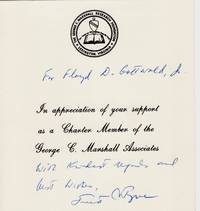 For Floyd D. Gottwald, Jr.
In appreciation of your support
as a Charter Member of the
George C. Marshall Associates
With kindest regards and
best wishes,